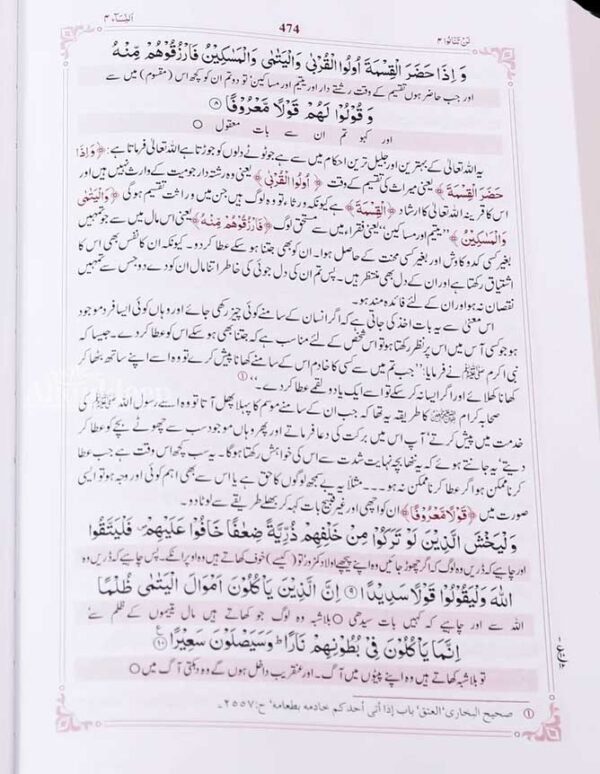 لَنْ تَنَالُوا ٤ 474 اَلنِّسَآء ٤
وَ اِذَا حَضَرَ الْقِسْمَةَ اُولُوا الْقُرْبٰى وَالْيَتٰمٰى وَالْمَسٰكِيْنُ فَارْزُقُوْهُمْ مِّنْهُ
اور جب حاضر ہوں تقسیم کے وقت رشتے دار اور یتیم اور مساکین' تو دو تم ان کو کچھ اس (مقسوم) میں سے
وَ قُوْلُوْا لَهُمْ قَوْلًا مَّعْرُوْفًا ٨
اور کہو تم ان سے بات معقول ○
یہ اللہ تعالیٰ کے بہترین اور جلیل ترین احکام میں سے ہے جو ٹوٹے دلوں کو جوڑتا ہے اللہ تعالیٰ فرماتا ہے: ﴿وَ اِذَا
حَضَرَ الْقِسْمَةَ﴾ یعنی میراث کی تقسیم کے وقت ﴿اُولُوا الْقُرْبٰى﴾ یعنی وہ رشتہ دار جو میت کے وارث نہیں ہیں اور
اس کا قرینہ اللہ تعالیٰ کا ارشاد ﴿الْقِسْمَةَ﴾ ہے کیونکہ ورثاء تو وہ لوگ ہیں جن میں وراثت تقسیم ہوگی ﴿وَالْيَتٰمٰى
وَالْمَسٰكِيْنُ﴾ "یتیم اور مساکین" یعنی فقراء میں سے مستحق لوگ ﴿فَارْزُقُوْهُمْ مِّنْهُ﴾ یعنی اس مال میں سے جو تمہیں
بغیر کسی کدوکاوش اور بغیر کسی محنت کے حاصل ہوا۔ ان کو بھی جتنا ہو سکے عطا کر دو۔ کیونکہ ان کا نفس بھی اس کا
اشتیاق رکھتا ہے اور ان کے دل بھی منتظر ہیں۔ پس تم ان کی دل جوئی کی خاطر اتنا مال ان کو دے دو جس سے تمہیں
نقصان نہ ہو اور ان کے لئے فائدہ مند ہو۔
اس معنی سے یہ بات اخذ کی جاتی ہے کہ اگر انسان کے سامنے کوئی چیز رکھی جائے اور وہاں کوئی ایسا فرد موجود
ہو جو کسی آس میں اس پر نظر رکھتا ہو تو اس شخص کے لئے مناسب ہے کہ جتنا بھی ہو سکے اس کو عطا کر دے۔ جیسا کہ
نبی اکرم ﷺ نے فرمایا: "جب تم میں سے کسی کا خادم اس کے سامنے کھانا پیش کرے تو وہ اسے اپنے ساتھ بٹھا کر
کھانا کھلائے اور اگر ایسا نہ کر سکے تو اسے ایک یا دو لقمے عطا کر دے۔" ①
صحابہ کرام ﷢ کا طریقہ یہ تھا کہ جب ان کے سامنے موسم کا پہلا پھل آتا تو وہ اسے رسول اللہ ﷺ کی
خدمت میں پیش کرتے' آپ اس میں برکت کی دعا فرماتے اور پھر وہاں موجود سب سے چھوٹے بچے کو عطا کر
دیتے' یہ جانتے ہوئے کہ یہ ننھا بچہ نہایت شدت سے اس کی خواہش رکھتا ہوگا۔ یہ سب کچھ اس وقت ہے جب عطا
کرنا ممکن ہو اگر عطا کرنا ممکن نہ ہو۔۔۔ مثلاً یہ بے سمجھ لوگوں کا حق ہے یا اس سے بھی اہم کوئی اور وجہ ہو تو ایسی
صورت میں ﴿قَوْلًا مَّعْرُوْفًا﴾ ان کو اچھی اور غیر قبیح بات کہہ کر بھلے طریقے سے لوٹا دو۔
وَلْيَخْشَ الَّذِيْنَ لَوْ تَرَكُوْا مِنْ خَلْفِهِمْ ذُرِّيَّةً ضِعٰفًا خَافُوْا عَلَيْهِمْ فَلْيَتَّقُوا
اور چاہیے کہ ڈریں وہ لوگ کہ اگر چھوڑ جائیں وہ اپنے پیچھے اولاد کمزور' تو (کیسے) خوف کھاتے ہیں وہ اوپر انکے۔ پس چاہیے کہ ڈریں وہ
اللّٰهَ وَلْيَقُوْلُوْا قَوْلًا سَدِيْدًا ٩ اِنَّ الَّذِيْنَ يَاْكُلُوْنَ اَمْوَالَ الْيَتٰمٰى ظُلْمًا
اللہ سے اور چاہیے کہ کہیں بات سیدھی ○ بلاشبہ وہ لوگ جو کھاتے ہیں مال یتیموں کے ظلم سے
اِنَّمَا يَاْكُلُوْنَ فِيْ بُطُوْنِهِمْ نَارًا ؕ وَسَيَصْلَوْنَ سَعِيْرًا ١٠
تو بلاشبہ کھاتے ہیں وہ اپنے پیٹوں میں آگ۔ اور عنقریب داخل ہوں گے وہ دہکتی آگ میں ○
① صحيح البخاری' العتق' باب إذا أتى أحدكم خادمه بطعامه' ح: ٢٥٥٧۔